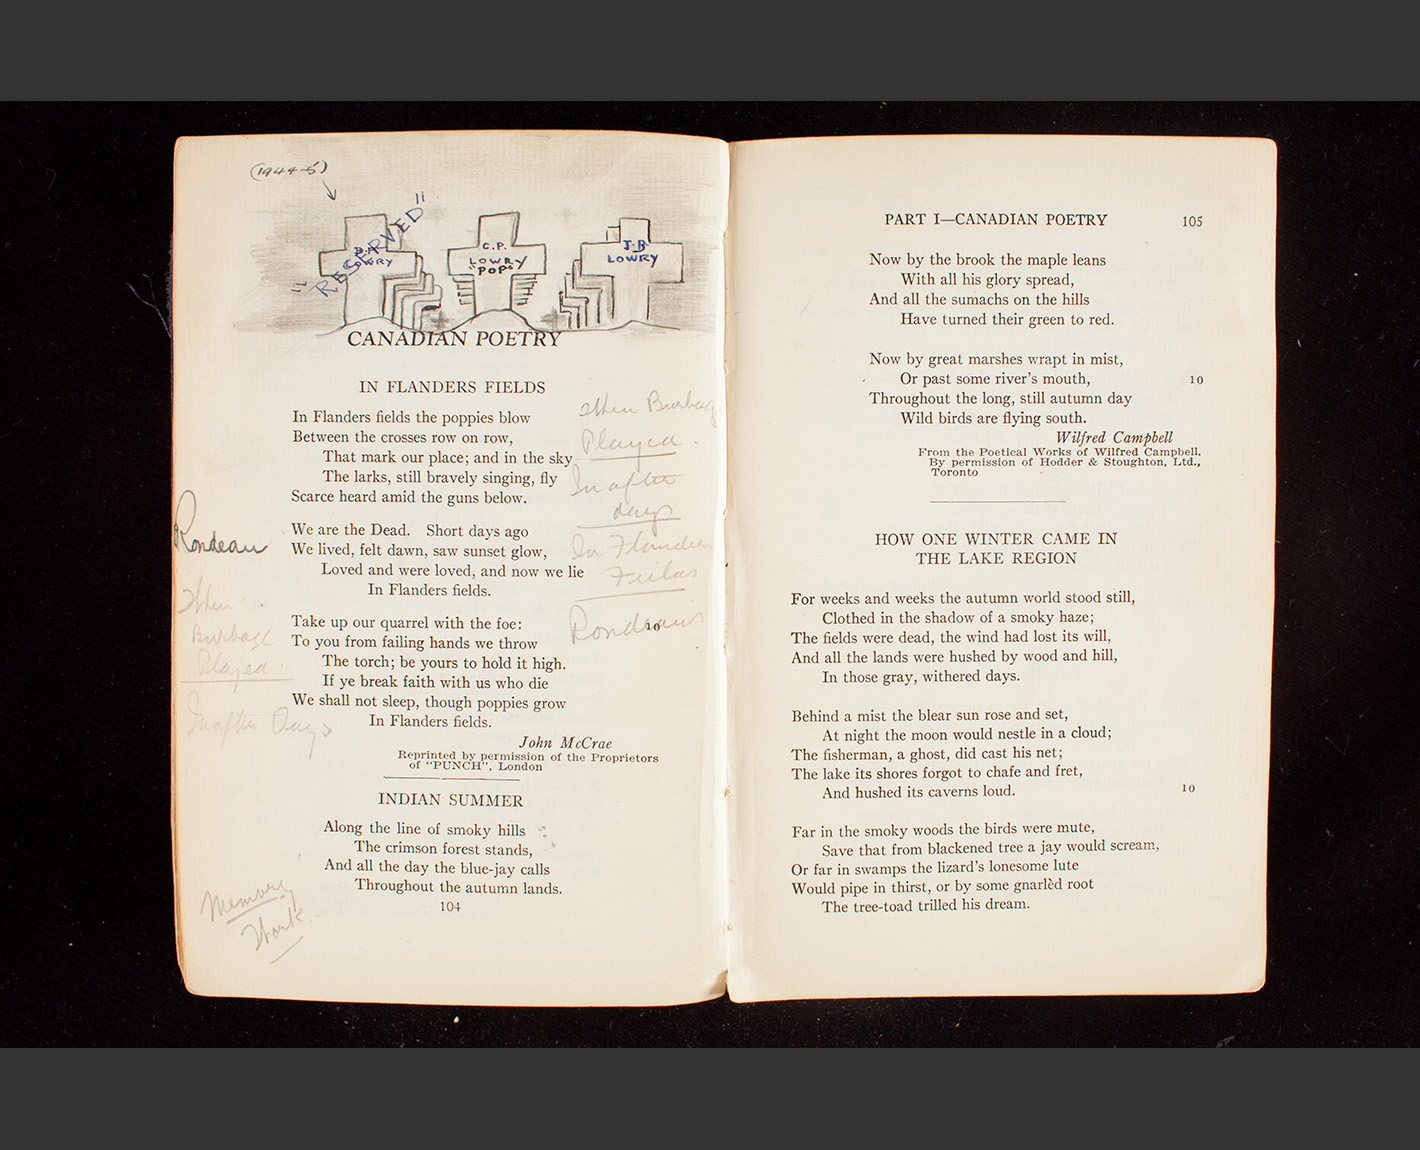 (1944-5)
"RESERVED"
LOWRY
C.P.
LOWRY
"POP"
J.B
LOWRY
CANADIAN POETRY
IN FLANDERS FIELDS
In Flanders fields the poppies blow
Between the crosses row on row,
That mark our place; and in the sky
The larks, still bravely singing, fly
Scarce heard amid the guns below.
We are the Dead. Short days ago
We lived, felt dawn, saw sunset glow,
Loved and were loved, and now we lie
In Flanders fields.
Take up our quarrel with the foe: 10
To you from failing hands we throw
The torch; be yours to hold it high.
If ye break faith with us who die
We shall not sleep, though poppies grow
In Flanders fields.
John McCrae
Reprinted by permission of the Proprietors
of "PUNCH", London
When Burbage
Played.
In after
days
In Flanders
Fields
Rondeau
When
Burbage
Played.
In after Days
INDIAN SUMMER
Along the line of smoky hills
The crimson forest stands,
And all the day the blue-jay calls
Throughout the autumn lands.
104
Memory
Work
PART I—CANADIAN POETRY 105
Now by the brook the maple leans
With all his glory spread,
And all the sumachs on the hills
Have turned their green to red.
Now by great marshes wrapt in mist,
Or past some river's mouth, 10
Throughout the long, still autumn day
Wild birds are flying south.
Wilfred Campbell
From the Poetical Works of Wilfred Campbell.
By permission of Hodder & Stoughton, Ltd.,
Toronto
HOW ONE WINTER CAME IN
THE LAKE REGION
For weeks and weeks the autumn world stood still,
Clothed in the shadow of a smoky haze;
The fields were dead, the wind had lost its will,
And all the lands were hushed by wood and hill,
In those gray, withered days.
Behind a mist the blear sun rose and set,
At night the moon would nestle in a cloud;
The fisherman, a ghost, did cast his net;
The lake its shores forgot to chafe and fret,
And hushed its caverns loud. 10
Far in the smoky woods the birds were mute,
Save that from blackened tree a jay would scream,
Or far in swamps the lizard's lonesome lute
Would pipe in thirst, or by some gnarlèd root
The tree-toad trilled his dream.